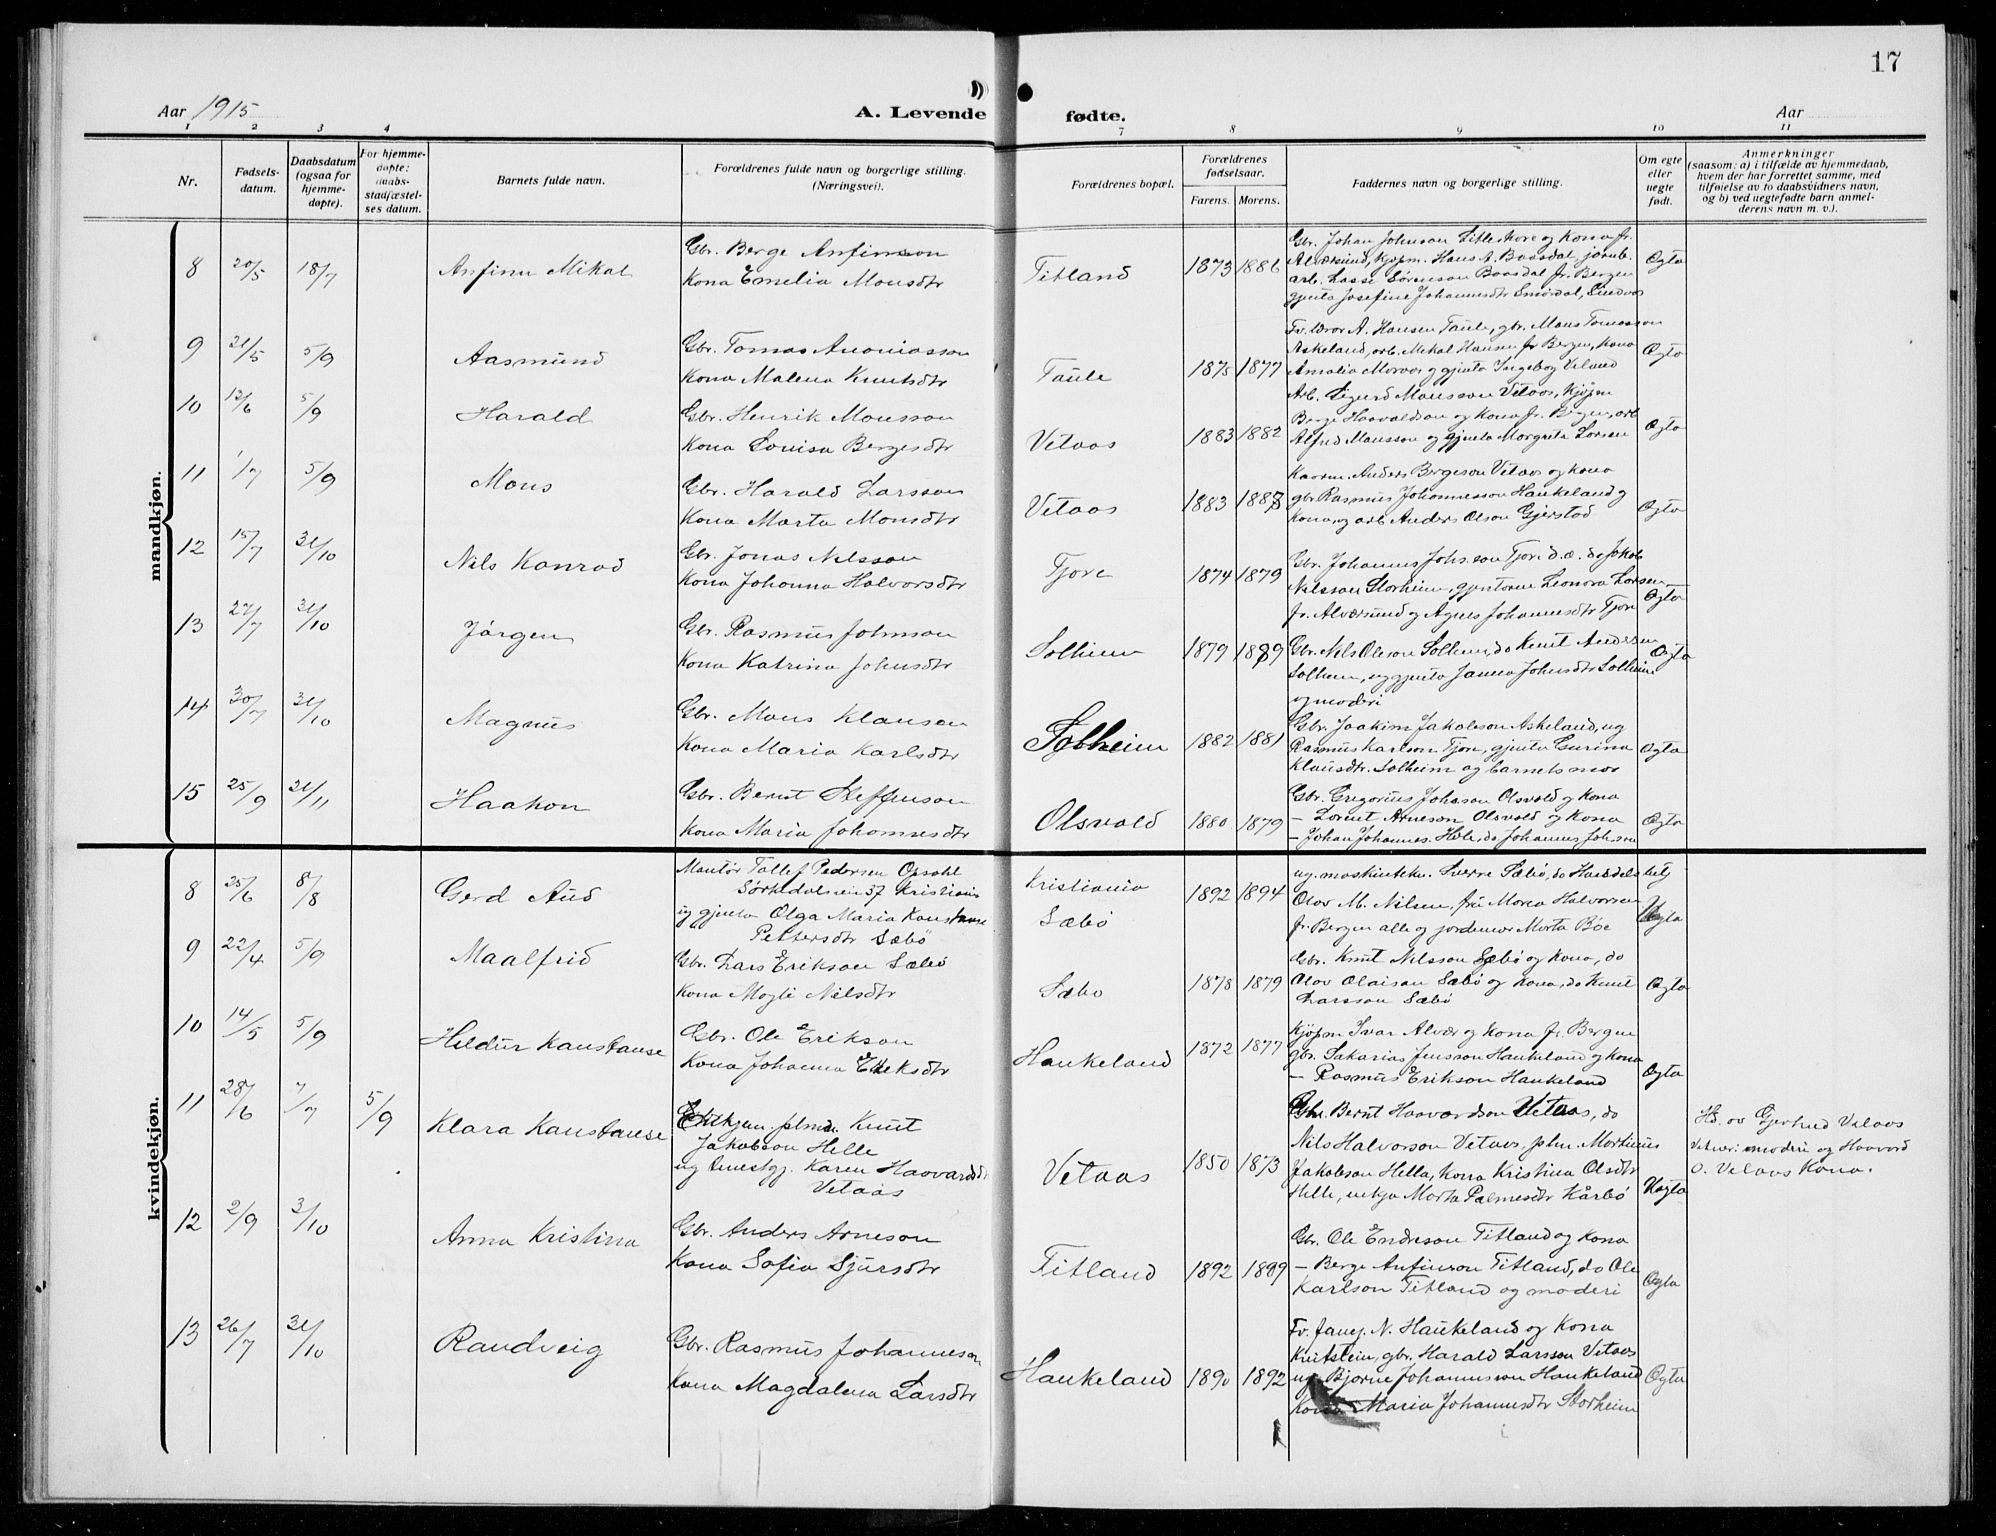 17
Aar 1915
A. Levende
fødte.
Aar
1 2 3 4 7 8 9 10 11
Nr.
Fødsels-
datum.
Daabsdatum
(ogsaa for
hjemme-
døpte).
For hjemme-
døpte:
daabs-
stadfæstel-
ses datum.
Barnets fulde navn.
Forældrenes fulde navn og borgerlige stilling.
(Næringsvei).
Forældrenes bopæl.
Forældrenes
fødselsaar.
Farens. Morens.
Faddernes navn og borgerlig stilling.
Om egte
eller
uegte
født.
Anmerkninger
(saasom: a) i tilfælde av hjemmedaab,
hvem der har forrettet samme, med
tilføielse av to daabsvidners navn,
og b) ved uegtefødte barn anmel-
derens navn m. v.).
mandkjøn.
8 20/5 18/7 Anfinn Mikal
Gbr. Berge Anfinson
Kona Emelia Monsdtr
Titland 1873 1886
Gbr. Johan Johnson Litleskore og Kona fr.
Alversund, kjøpm. Hans A. Baasdal jernb.
arb. Lasse Sørenson Baasdal fr. Bergen
gjenta Josefine Johannesdtr Smørdal,
Egta
9 21/5 5/9 Aasmund
Gbr. Tomas Ananiasson
Kona Malena Knutsdtr
Taule 1875 1877
Fv. Ivar A. Hansen Taule, gbr. Mons Tomasson
Askeland, arb. Mikal Hansen fr Bergen, Kona
Amalia Morvos og gjenta Ingebog Veland
Egta
10 12/6 5/9 Harald
Gbr. Henrik Monsson
Kona Lovisa Bergesdtr
Vetaas 1883 1882
Arb. Sigurd Monsson Vetaas, Kjøpm
Berge Haavaldson og Kona fr. Bergen, arb
Alfred Monsson og gjenta Margreta Larsen
Egta
11 1/7 5/9 Mons
Gbr. Harald Larsson
Kona Marta Monsdtr
Vetaas 1883 1888
Anders Bergeson Vetaas og Kona
gbr Rasmus Johannesson Haukeland og
Kona, og arb. Anders Olson Gjerstad
Egta
12 15/7 31/10 Nils Konrad
Gbr. Jonas Nilsson
Kona Johanna Halvorsdtr
Tjore 1874 1879
Gbr. Johannes Johs.son Tjore d.æ. do Jakob
Nilsson Storheim, gjentorne Leonora Larsen
fr. Alversund og Agnes Johannesdtr Tjore
Egta
13 27/7 31/10 Jørgen
Gbr. Rasmus Johnson
Kona Katrina Johnsdtr
Solheim 1879 1889
Gbr. Nils Oleson Solheim, do Knut Andersen
Solheim, og gjenta Janna Johnsdtr Solheim
og moderi
Egta
14 30/7 31/10 Magnus
Gbr. Mons Klausen
Kona Maria Karlsdtr
Solheim 1882 1881
Gbr. Joakim Jakobson Askeland, og
Rasmus Karlson Tjore, gjenta Gurina
Klausdtr. Solheim og barnets mor
Egta
15 25/9 21/11 Haakon
Gbr. Bernt Steffenson
Kona Maria Johannesdtr
Olsvold 1880 1879
Gbr. Gregorius Johnson Olsvold og Kona
— Lorent Arneson Olsvold og Kona
— Johan Johannes. Hele, do Johannes Joh.son
Egta
kvindekjøn.
8 25/6 8/8 Gerd Aud
Montør Tollef Pedersen Opsahl
Sørkedalsveien 37 Kristiania
og gjenta Olga Maria Konstanse
Pettersdtr Sæbø
Kristiania
Sæbø
1892 1894
ug. maskintekn. Sverre Sæbø, do Handelsbetj
Olav M. Nilsen, frü Maria Halvorsen
fr. Bergen alle og jordemor Marta Bøe
Uegta
9 22/4 5/9 Maalfrid
Gbr. Lars Erikson Sæbø
Kona Magli Nilsdtr
Sæbø 1878 1879
Gbr. Knut Nilsson Sæbø og Kona, do
Olav Olaisan Sæbø og Kona, do Knut
Larsson Sæbø
Egta
10 14/5 5/9 Hildur Konstanse
Gbr. Ole Erikson
Kona Johanna Eriksdtr
Haukeland 1872 1877
Kjøpm Ivar Alver og Kona fr. Bergen
gbr. Sakarias Jensson Haukeland og Kona
— Rasmus Erikson Haukeland
Egta
11 28/6 7/7 5/9 Klara Konstanse
Enkjem. plmdr Knut
Jakobson Helle
og tenestgj. Karen Haavardsdtr
Vetaas
Vetaas 1850 1873
Gbr. Bernt Haavardson Vetaas, do
Nils Halvorson Vetaas, plm. Martinus
Jakobson Hella, Kona Kristina Olsdtr
Helle, enkja Marta Palmesdtr Kårbø
Uegta
Hd. av Gjertrud Vetaas
Vetner: moderi og Haavard
O. Vetaas Kona.
12 2/9 3/10 Anna Kristina
Gbr. Anders Arneson
Kona Sofia Sjursdtr
Titland 1892 1889
Gbr. Ole Endreson Titland og Kona
— Berge Anfinson Titland, do Ole
Karlson Titland og moderi
Egta
13 26/7 31/10 Randveig
Gbr. Rasmus Johanneson
Kona Magdalena Larsdtr
Haukeland 1890 1892
Fv. N. Haukeland og Kona
gbr. Harald Larsson Vetaas
og Bjarne Johannesson Haukeland
Kona Maria Johannesdtr Storheim
Egta